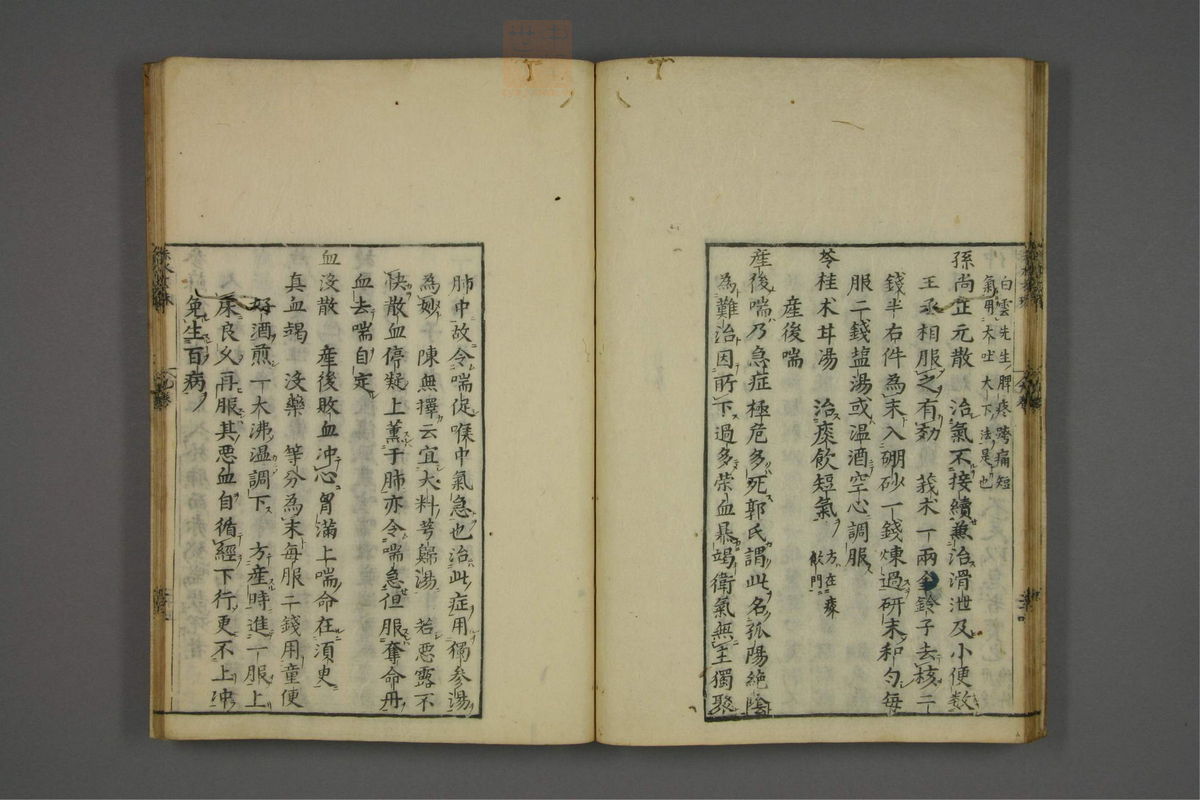 白雲先生脾疼䠒痛短
氣用大吐大下法是也
孫尚正元散　治氣不接續兼治滑泄及小便数
王丞相服之有効　莪朮一兩金鈴子去核二
錢半右件為末入硼砂一錢煉過研末和勻每
服二錢盐湯或温酒空心調服
苓桂朮甘湯　治痰飲短氣　方在痰
飲門
産後喘
産後喘乃急症極危多死郭氏謂此名孤陽絶陰
為難治因所下過多荣血暴竭衛氣無主獨聚
肺中故令喘促喉中氣急也治此症用獨参湯
為妙　陳無擇云宜大料芎歸湯　若悪露不
快散血停凝上薫于肺亦令喘急但服奪命丹
血去喘自定
血没散　産後敗血冲心胷滿上喘命在須臾
真血竭　没藥　等分為末每服二錢用童便
好酒煎一大沸温調下　方産時進一服上
床良久再服其悪血自循經下行更不上冲
免生百病